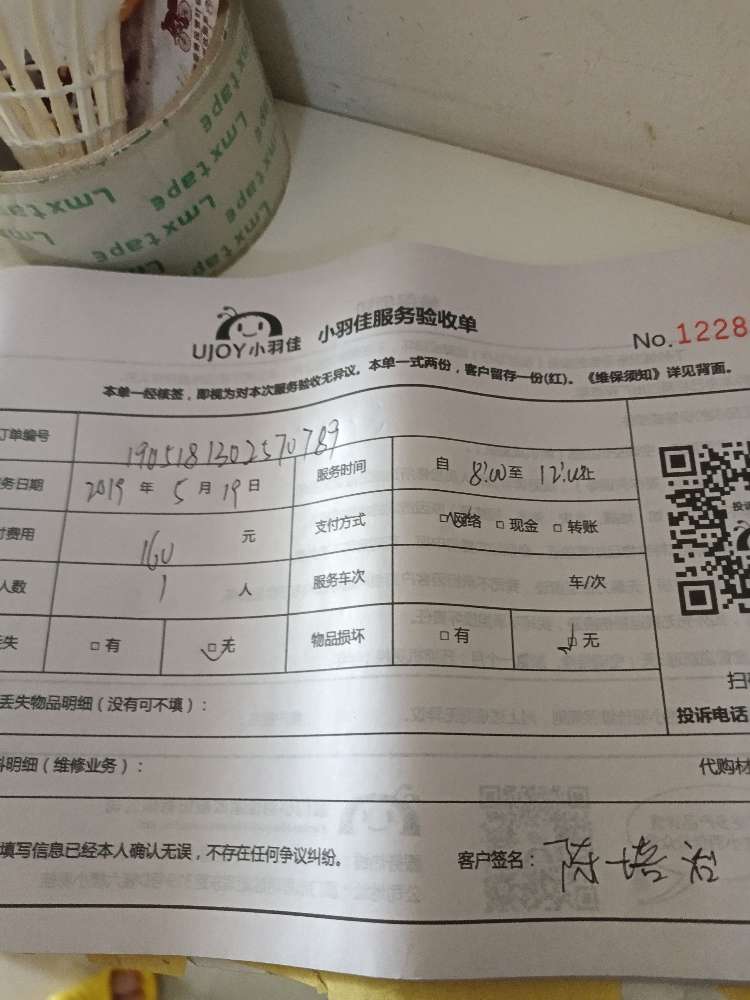 Lmx tape
Lmx tape
Lmx tape
UJOY小羽佳 小羽佳服务验收单
No.1228
本单一经核签，即视为对本次服务验收无异议。本单一式两份，客户留存一份(红)。《维保须知》详见背面。
订单编号 1905181302570789 服务时间 自 8:00至 12:00止
务日期 2019 年 5 月 19 日
付费用 160 元 支付方式 □网络 □现金 □转账
人数 1 人 服务车次 车/次
失 □有 □无 物品损坏 □有 □无
丢失物品明细（没有可不填）：
投诉电话
料明细（维修业务）： 代购材
填写信息已经本人确认无误，不存在任何争议纠纷。 客户签名：陈培